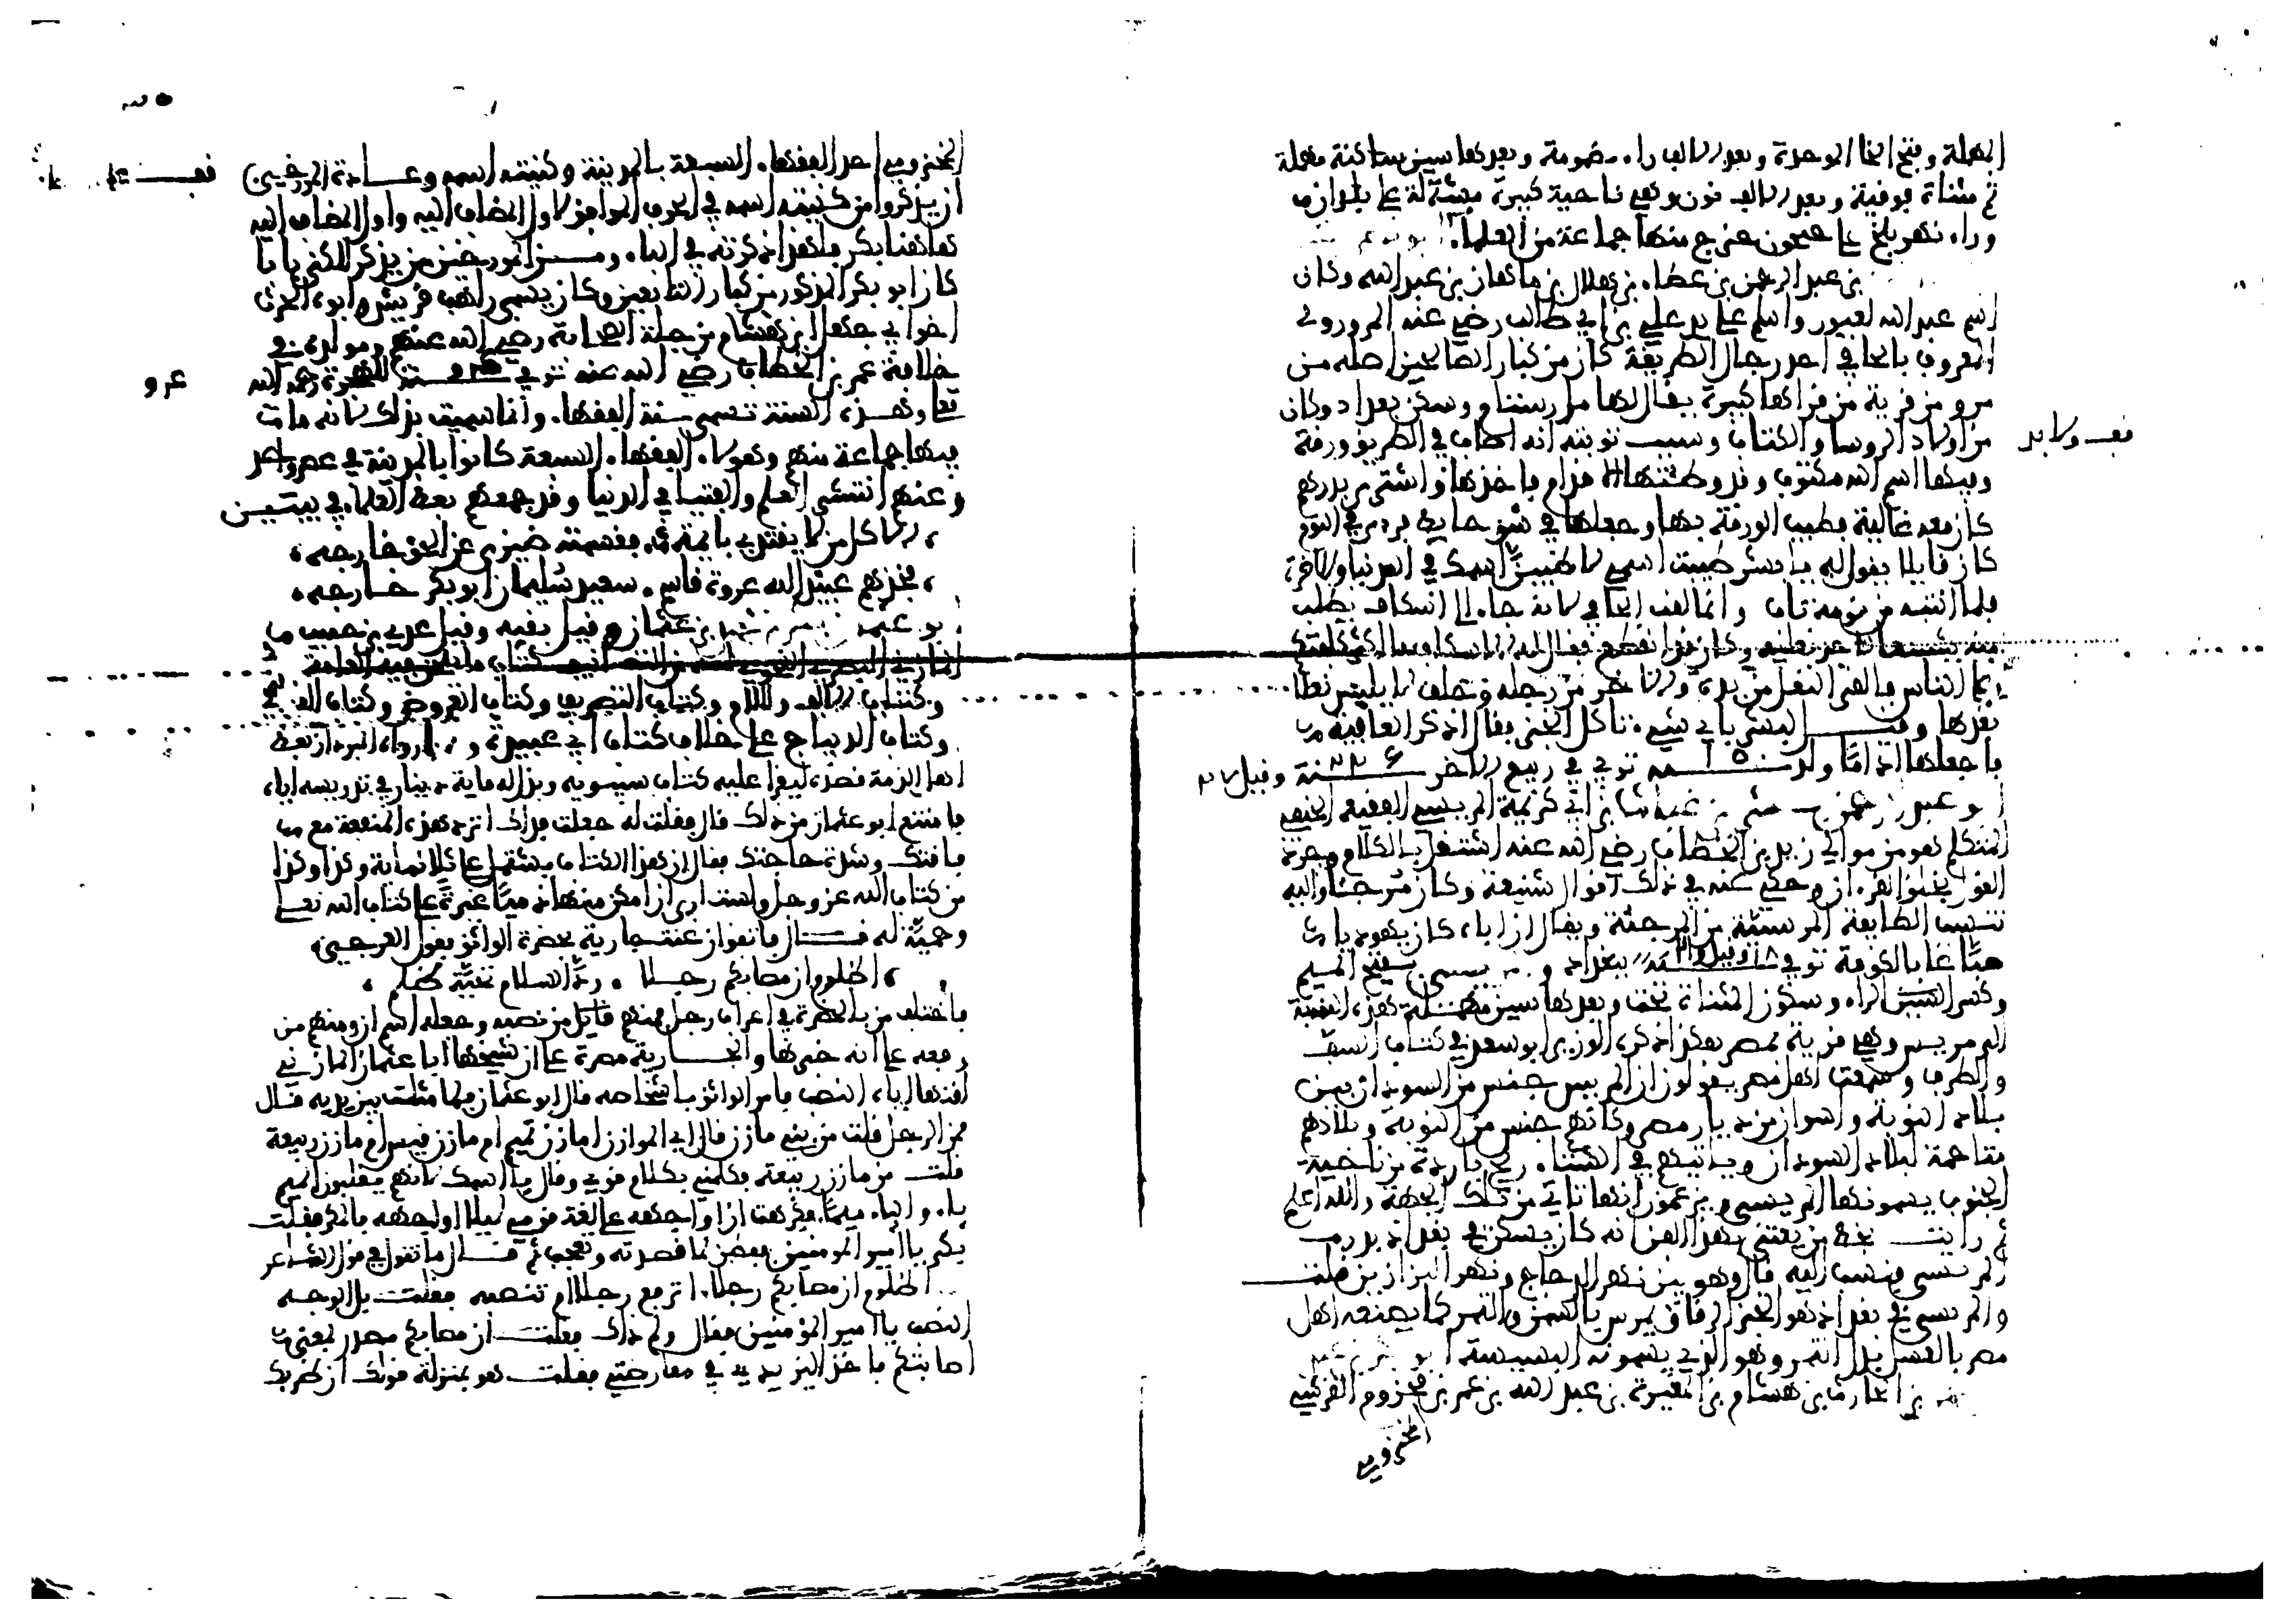 المهملة وفتح الخاء الموحدة وبعد الالف راء مضمومة وبعدها سين ساكنة مهملة
ثم مثناة فوقية وبعد الالف نون وهي ناحية كبيرة مشتملة على بلدان
وراء نهر بلخ على جيحون خرج منها جماعة من العلماء
بن عبد الرحمن بن عطاء بن هلال بن ماهان بن عبد الله وكان
اسم عبد الله بعبور واسلم على يد علي بن ابي طالب رضي عنه المروزي
المعروف بالحافي احد رجال الطريقة كان من كبار الصالحين اصله من
مرو من قرية من قراها كبيرة يقال لها مابرسام وسكن بغداد وكان
من اولاد الروسا والكتاب وسبب توبته انه اصاب في الطريق ورقة
وفيها اسم الله مكتوب وقد وطئتها الاقدام فاخذها واشترى بدرهم
كان معه غالية فطيب الورقة بها وجعلها في شق حايط فرءى في النوم
كان قايلا يقول له يا بشر طيبت اسمي لاطيبن اسمك في الدنيا والاخرة
فلما انتبه من نومه تاب وانما لقب الحافي لانه جاء الى اسكاف يطلب
منه شسعا لاحد نعليه وكان قد انقطع فقال له الاسكاف ما اكثر كلفتكم
على الناس فالقى النعل من يده والاخر من رجله وحلف لا يلبس نعلا
بعدها وقيل لبشر باي شيء تاكل الخبز فقال اذكر العافية
فاجعلها اداما ولد سنة ١٥٠ توفي في ربيع الاخر سنة ٢٢٦ وقيل
ابو عبد الرحمن بشر بن غياث بن ابي كريمة المريسي الفقيه الحنفي
المتكلم هو من موالي زيد بن الخطاب رضي الله عنه اشتغل بالكلام وجرد
القول بخلق القرءان وحكي عنه في ذلك اقوال شنيعة وكان مرجئا واليه
تنسب الطايفة المريسية من المرجئة ويقال ان اباه كان يهوديا
صباغا بالكوفة توفي سنة ببغداد والمريسي بفتح الميم
وكسر الراء وسكون المثناة تحت وبعدها سين مهملة هذه النسبة
الى مريس وهي قرية بمصر هكذا ذكره الوزير ابو سعد في كتاب النتف
والطرف وسمعت اهل مصر يقولون ان المريس جنس من السودان بين
بلاد النوبة واسوان من ديار مصر وكانهم جنس من النوبة وبلادهم
متاخمة لبلاد السودان وياتيهم في الشتاء ريح باردة من ناحية
الجنوب يسمونها المريسي ويزعمون انها تاتي من تلك الجهة والله اعلم
ثم رايت بخط من يعتني بهذا الفن انه كان يسكن في بغداد بدرب
المريسي فنسب اليه قال وهو بين نهر الدجاج ونهر البزازين قلت
والمريسي في بغداد هو الخبز الرقاق يمرس بالسمن والتمر كما يصنعه اهل
مصر بالعسل بدل التمر وهو الذي يسمونه البسيسة ابو بكر بن عبد
بن الحارث بن هشام بن المغيرة بن عبد الله بن عمر بن مخزوم القرشي
المخزومي
فف ولا بد
المخزومي احد الفقهاء السبعة بالمدينة وكنيته اسمه وعادة المورخين
ان يذكروا من كنيته اسمه في الحرف الموافق لاول المضاف اليه واول المضاف اليه
هاهنا بكر فلهذا ذكرته في الباء ومن المورخين من يذكر للكنى بابا
كان ابو بكر المذكور من كبار التابعين وكان يسمى راهب قريش وابوه الحرث
اخو ابي جهل بن هشام من جملة الصحابة رضي الله عنهم ومولده في
خلافة عمر بن الخطاب رضي الله عنه توفي سنة للهجرة رحمه الله
تعا وهذه السنة تسمى سنة الفقهاء وانما سميت بذلك لانه مات
فيها جماعة منهم وهولاء الفقهاء السبعة كانوا بالمدينة في عصر واحد
وعنهم انتشر العلم والفتيا في الدنيا وقد جمعهم بعض العلماء في بيتين
الا كل من لا يقتدي بائمة فقسمته ضيزى عن الحق خارجه
فخذهم عبيد الله عروة قاسم سعيد سليمان ابو بكر خارجه
بو عثمان بن عثمان وقيل بقية وقيل عدي بن حبيب
المازني البصري النحوي له من التصانيف كتاب ما تلحن فيه العامة
وكتاب الالف واللام وكتاب التصريف وكتاب العروض وكتاب القوافي
وكتاب الديباج على خلاف كتاب ابي عبيدة ومما رواه المبرد ان بعض
اهل الذمة قصده ليقرا عليه كتاب سيبويه وبذل له ماية دينار في تدريسه اياه
فامتنع ابو عثمان من ذلك قال فقلت له جعلت فداك اترد هذه المنفعة مع
فاقتك وشدة حاجتك فقال ان هذا الكتاب يشتمل على ثلاثماية وكذا وكذا
من كتاب الله عز وجل ولست ارى ان امكن منها ذميا غيرة على كتاب الله تعلى
وحمية له قال فاتفق ان غنت جارية بحضرة الواثق بقول العرجي
اظلوم ان مصابكم رجلا رد السلام تحية ظلم
فاختلف من بالحضرة في اعراب رجل فمنهم قايل من نصبه وجعله اسم ان ومنهم من
رفعه على انه خبرها والجارية مصرة على ان شيخها ابا عثمان المازني
لقنها اياه بالنصب فامر الواثق باشخاصه قال ابو عثمان فلما مثلت بين يديه قال
ممن الرجل قلت من بني مازن قال اي الموازن امازن تميم ام مازن قيس ام مازن ربيعة
قلت من مازن ربيعة فكلمني بكلام قومي وقال با اسمك لانهم يقلبون الميم
باء والباء ميما فكرهت ان اواجهه على لغة قومي ليلا اواجهه بالمكر فقلت
بكر يا امير المومنين ففطن لما قصدته وتعجب ثم قال ما تقول في قول الشاعر
اظلوم ان مصابكم رجلا اترفع رجلا ام تنصبه فقلت بل الوجه
النصب يا امير المؤمنين فقال ولم ذلك فقلت ان مصابكم مصدر بمعنى
اصابتكم فاخذ اليزيدي في معارضتي فقلت هو بمنزلة قولك ان ضربك